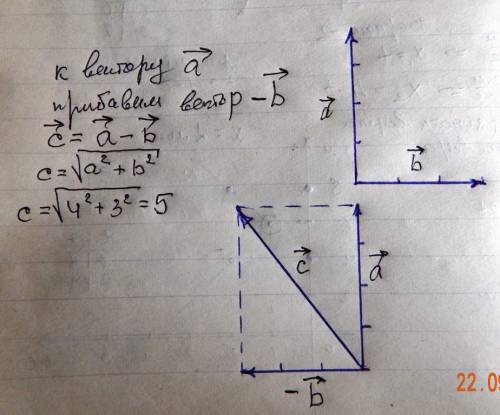 к вектору a⃗
прибавим вектор -b⃗
c⃗ = a⃗ - b⃗
c = √a² + b²
c = √4² + 3² = 5
a⃗
b⃗
c⃗
a⃗
-b⃗
22.09